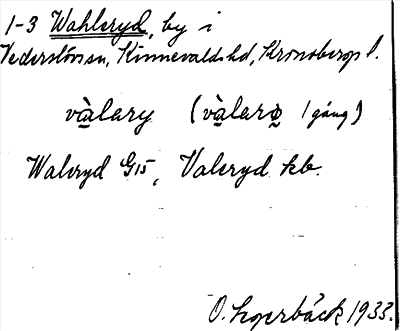 1-3 Wahleryd, by i
Vederslövs sn, Kinnevalds hd, Kronobergs l.
vàlary (vàlarø 1 gång)
Waleryd G15, Valeryd kb.
O. Lagerbäck 1933.